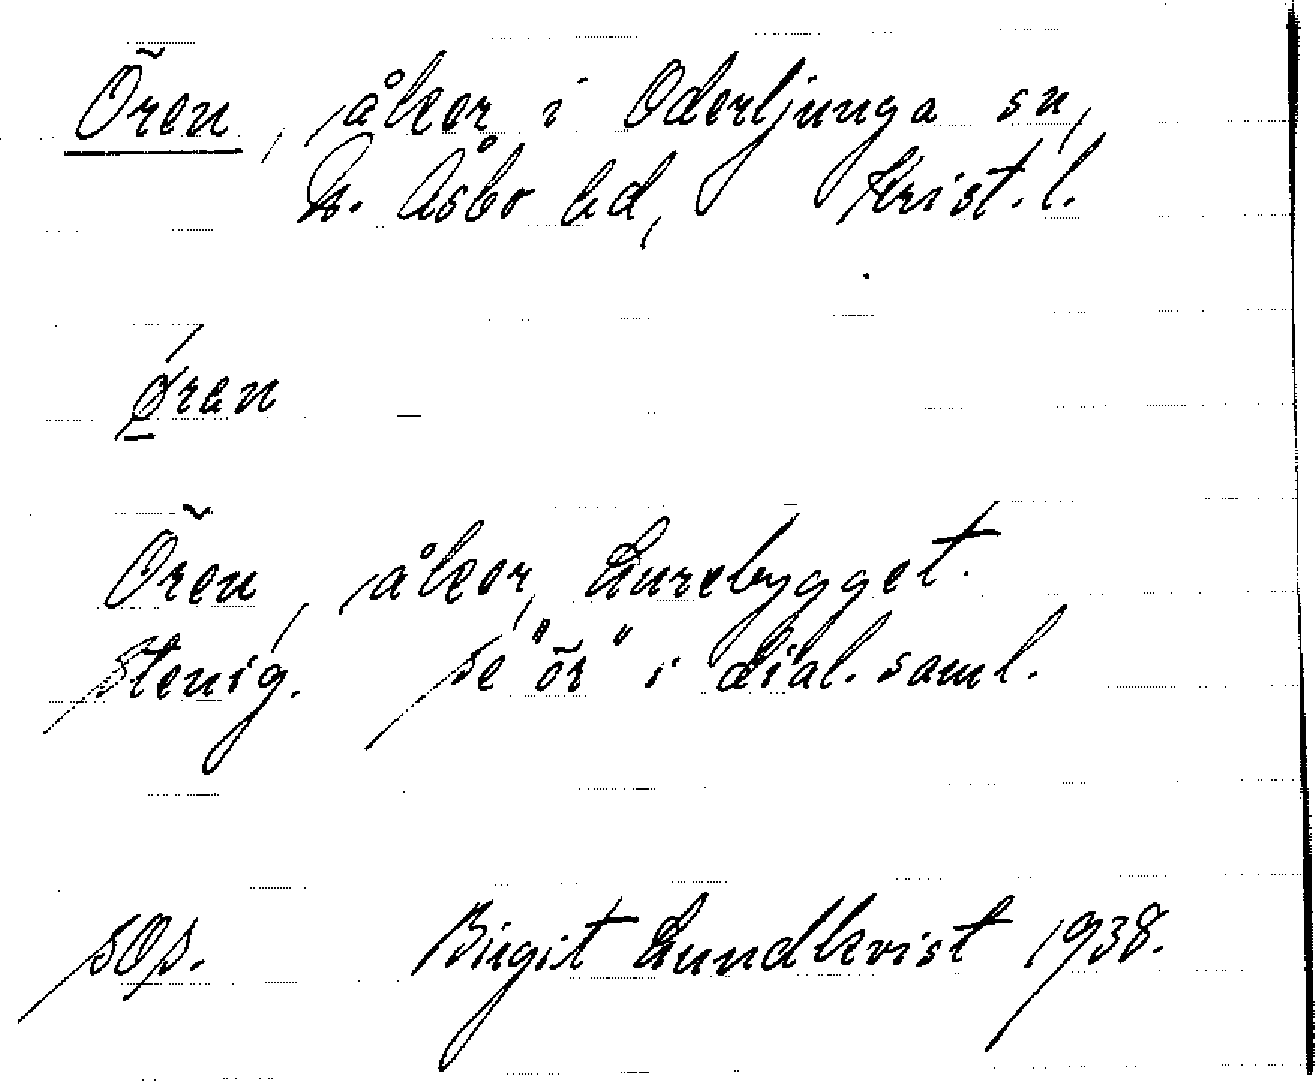 Ören, åker i Oderljunga sn,
N. Åsbo hd, Krist. l.
ǿran
Ören, åker, Lurebygget.
Stenig. Se "ör" i dial. saml.
Birgit Lundkvist 1938.